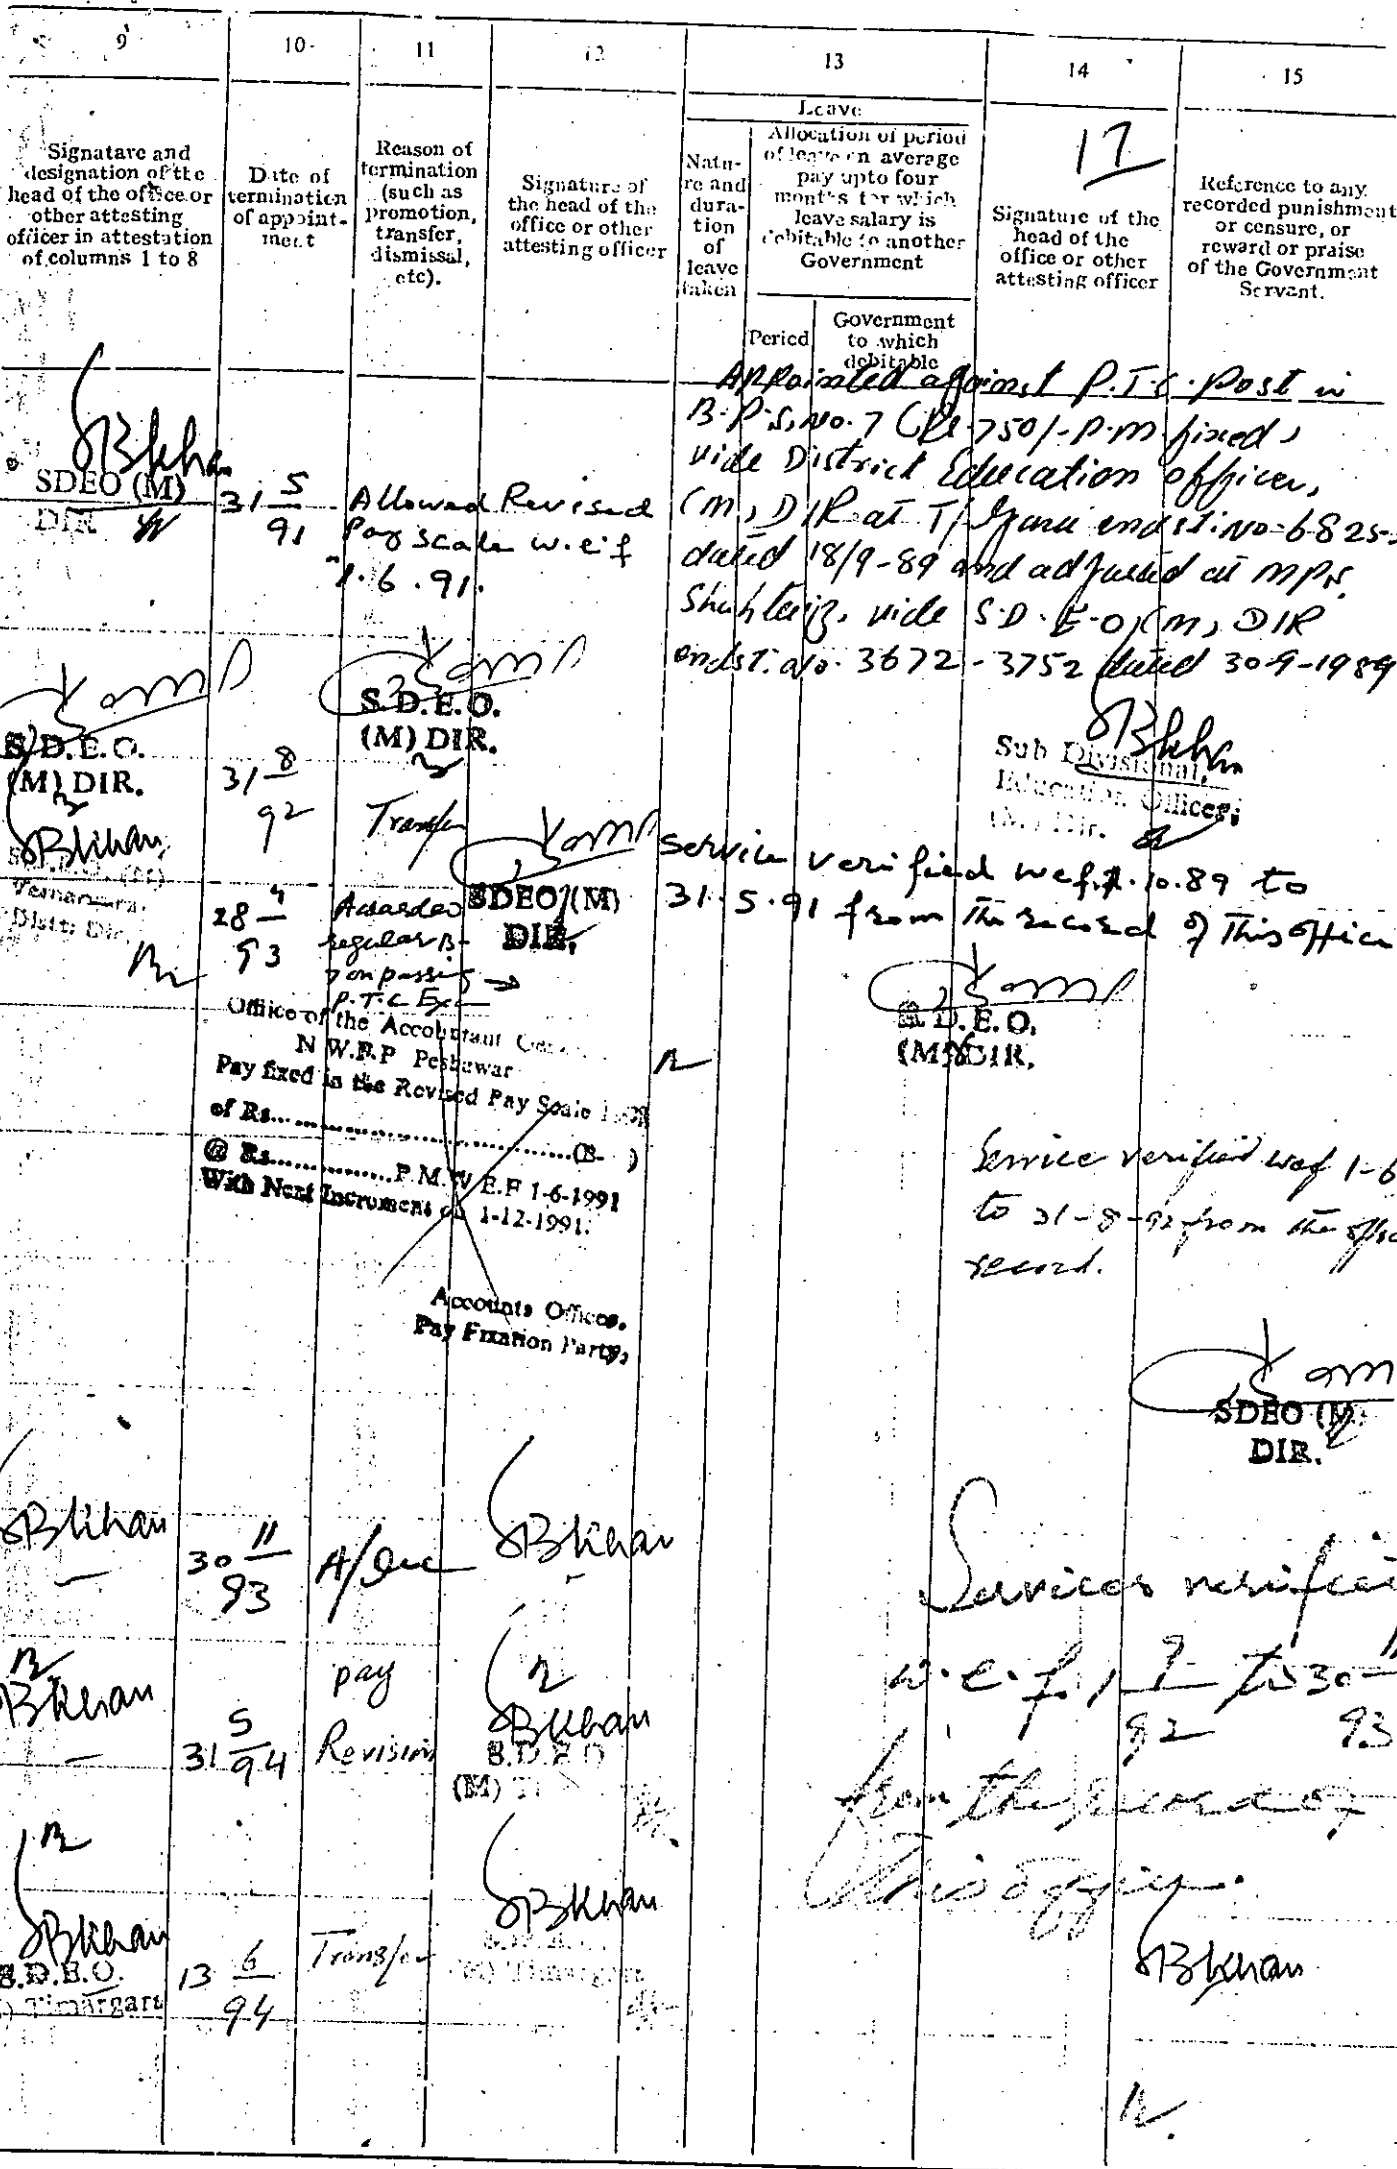 9 10 11 12 13 14 15
Signature and
designation of the
head of the office or
other attesting
officer in attestation
of columns 1 to 8
Date of
termination
of appoint-
ment
Reason of
termination
(such as
promotion,
transfer,
dismissal,
etc).
Signature of
the head of the
office or other
attesting officer
Leave
Natu-
re and
dura-
tion
of
leave
taken
Allocation of period
of leave on average
pay upto four
months for which
leave salary is
debitable to another
Government
Period
Government
to which
debitable
17
Signature of the
head of the
office or other
attesting officer
Reference to any
recorded punishment
or censure, or
reward or praise
of the Government
Servant.
Appointed against P.T.C. Post in
B.P.S. No. 7 750/- P.m fixed,
vide District Education officer,
(m) DIR at T/ endst. No-6825-
dated 18/9-89 and adjusted at MPS.
vide S.D.E.O, (m) DIR
endst. No. 3672-3752 dated 30-9-1989
Bkhan
Sub Divisional,
Education Officer,
(M) Dir.
Bkhan
SDEO (M)
DIR
31 5/91
Allowed Revised
Pay scale w.e.f
1.6.91.
S.D.E.O.
(M) DIR.
S.D.E.O.
(M) DIR.
31 8/92
Transfer
SDEO (M)
DIR.
Service verified wef 1.10.89 to
31.5.91 from the record of This office
S.D.E.O.
(M) DIR.
Bkhan
Distt: Dir.
28 4/93
Awarded
regular B-
7 on passing
P.T.C Ex
Office of the Accountant
N.W.F.P Peshawar
Pay fixed in the Revised Pay Scale
of Rs..............................(B- )
@ Rs..............P.M.W.E.F 1-6-1991
With Next Increment on 1-12-1991.
Accounts Officer.
Pay Fixation Party,
Service verified wef 1-6
to 31-8-92 from the
record.
SDEO (M)
DIR.
Bkhan
30 11/93
A/
Bkhan
Services verified
w.e.f. 1 9/92 to 30 11/93
from the record of
this office.
Bkhan
Bkhan
31 5/94
pay
Revision
Bkhan
S.D.E.O
(M)
Bkhan
S.D.E.O.
Timargara
13 6/94
Transfer
Bkhan
Timargara